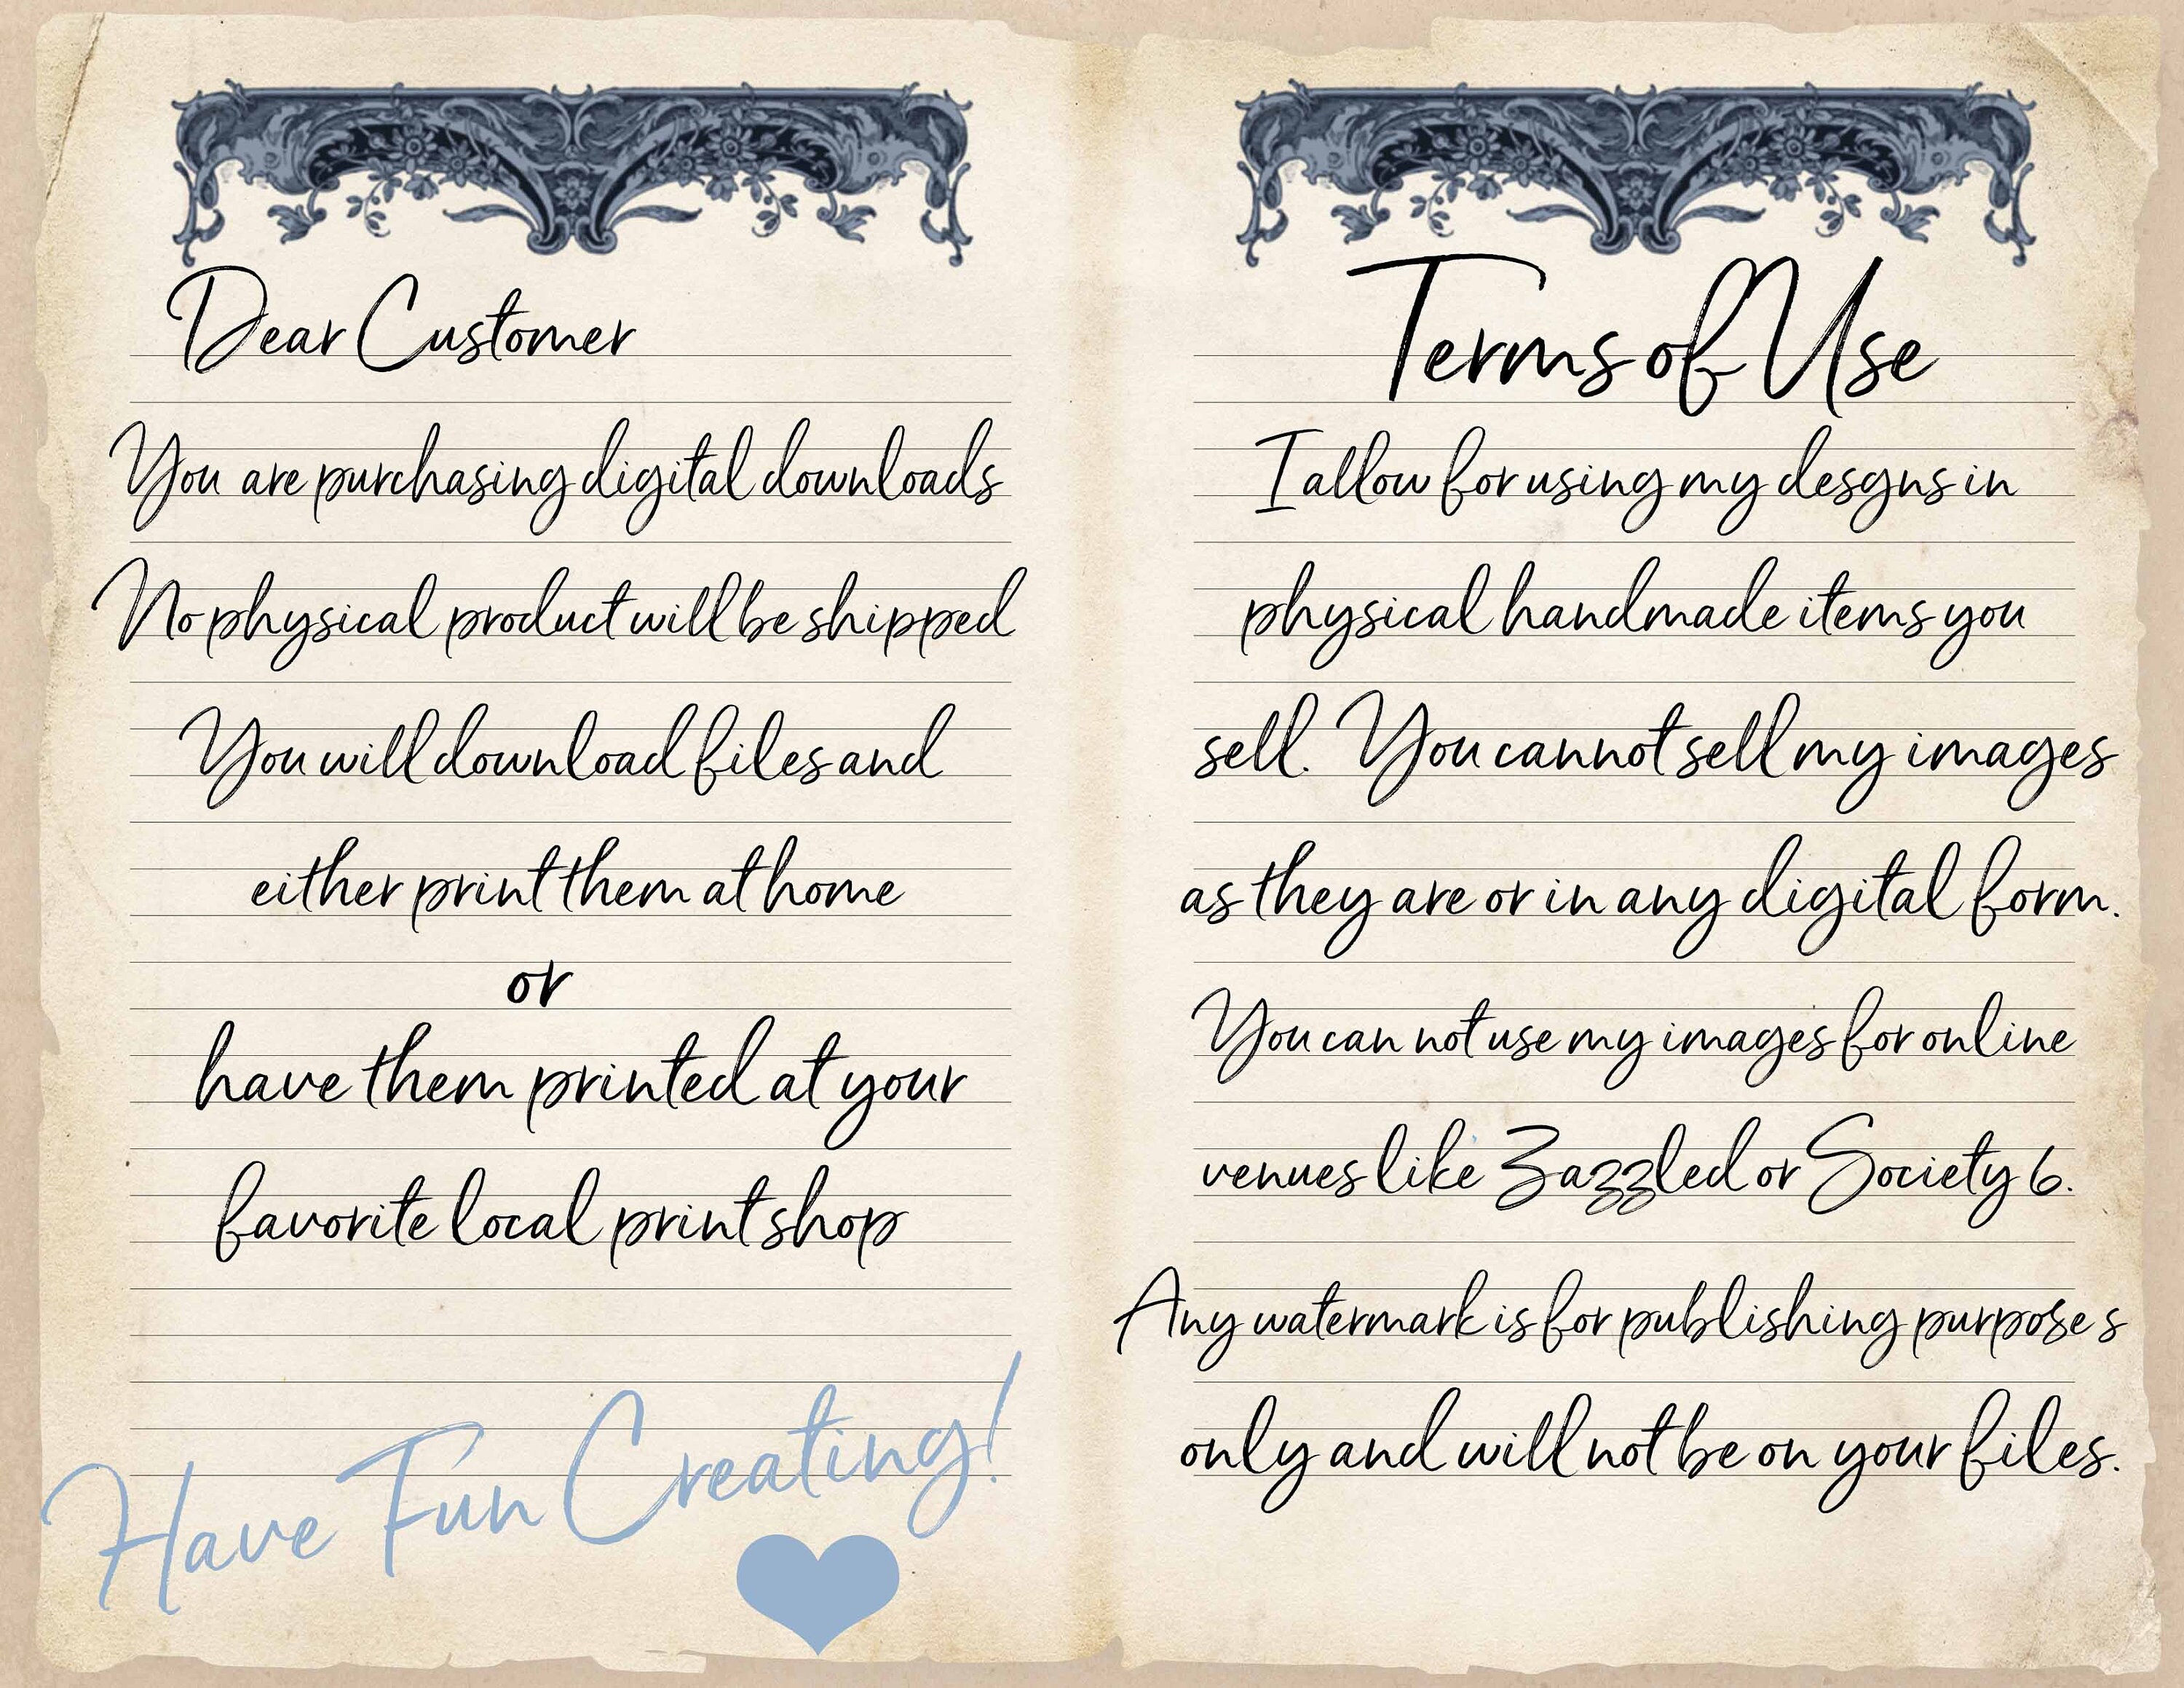 Dear Customer
You are purchasing digital downloads
No physical product will be shipped
You will download files and
either print them at home
or
have them printed at your
favorite local print shop
Have Fun Creating!
Terms of Use
I allow for using my desgns in
physical handmade items you
sell. You cannot sell my images
as they are or in any digital form.
You can not use my images for online
venues like Zazzled or Society 6.
Any watermark is for publishing purpose s
only and will not be on your files.